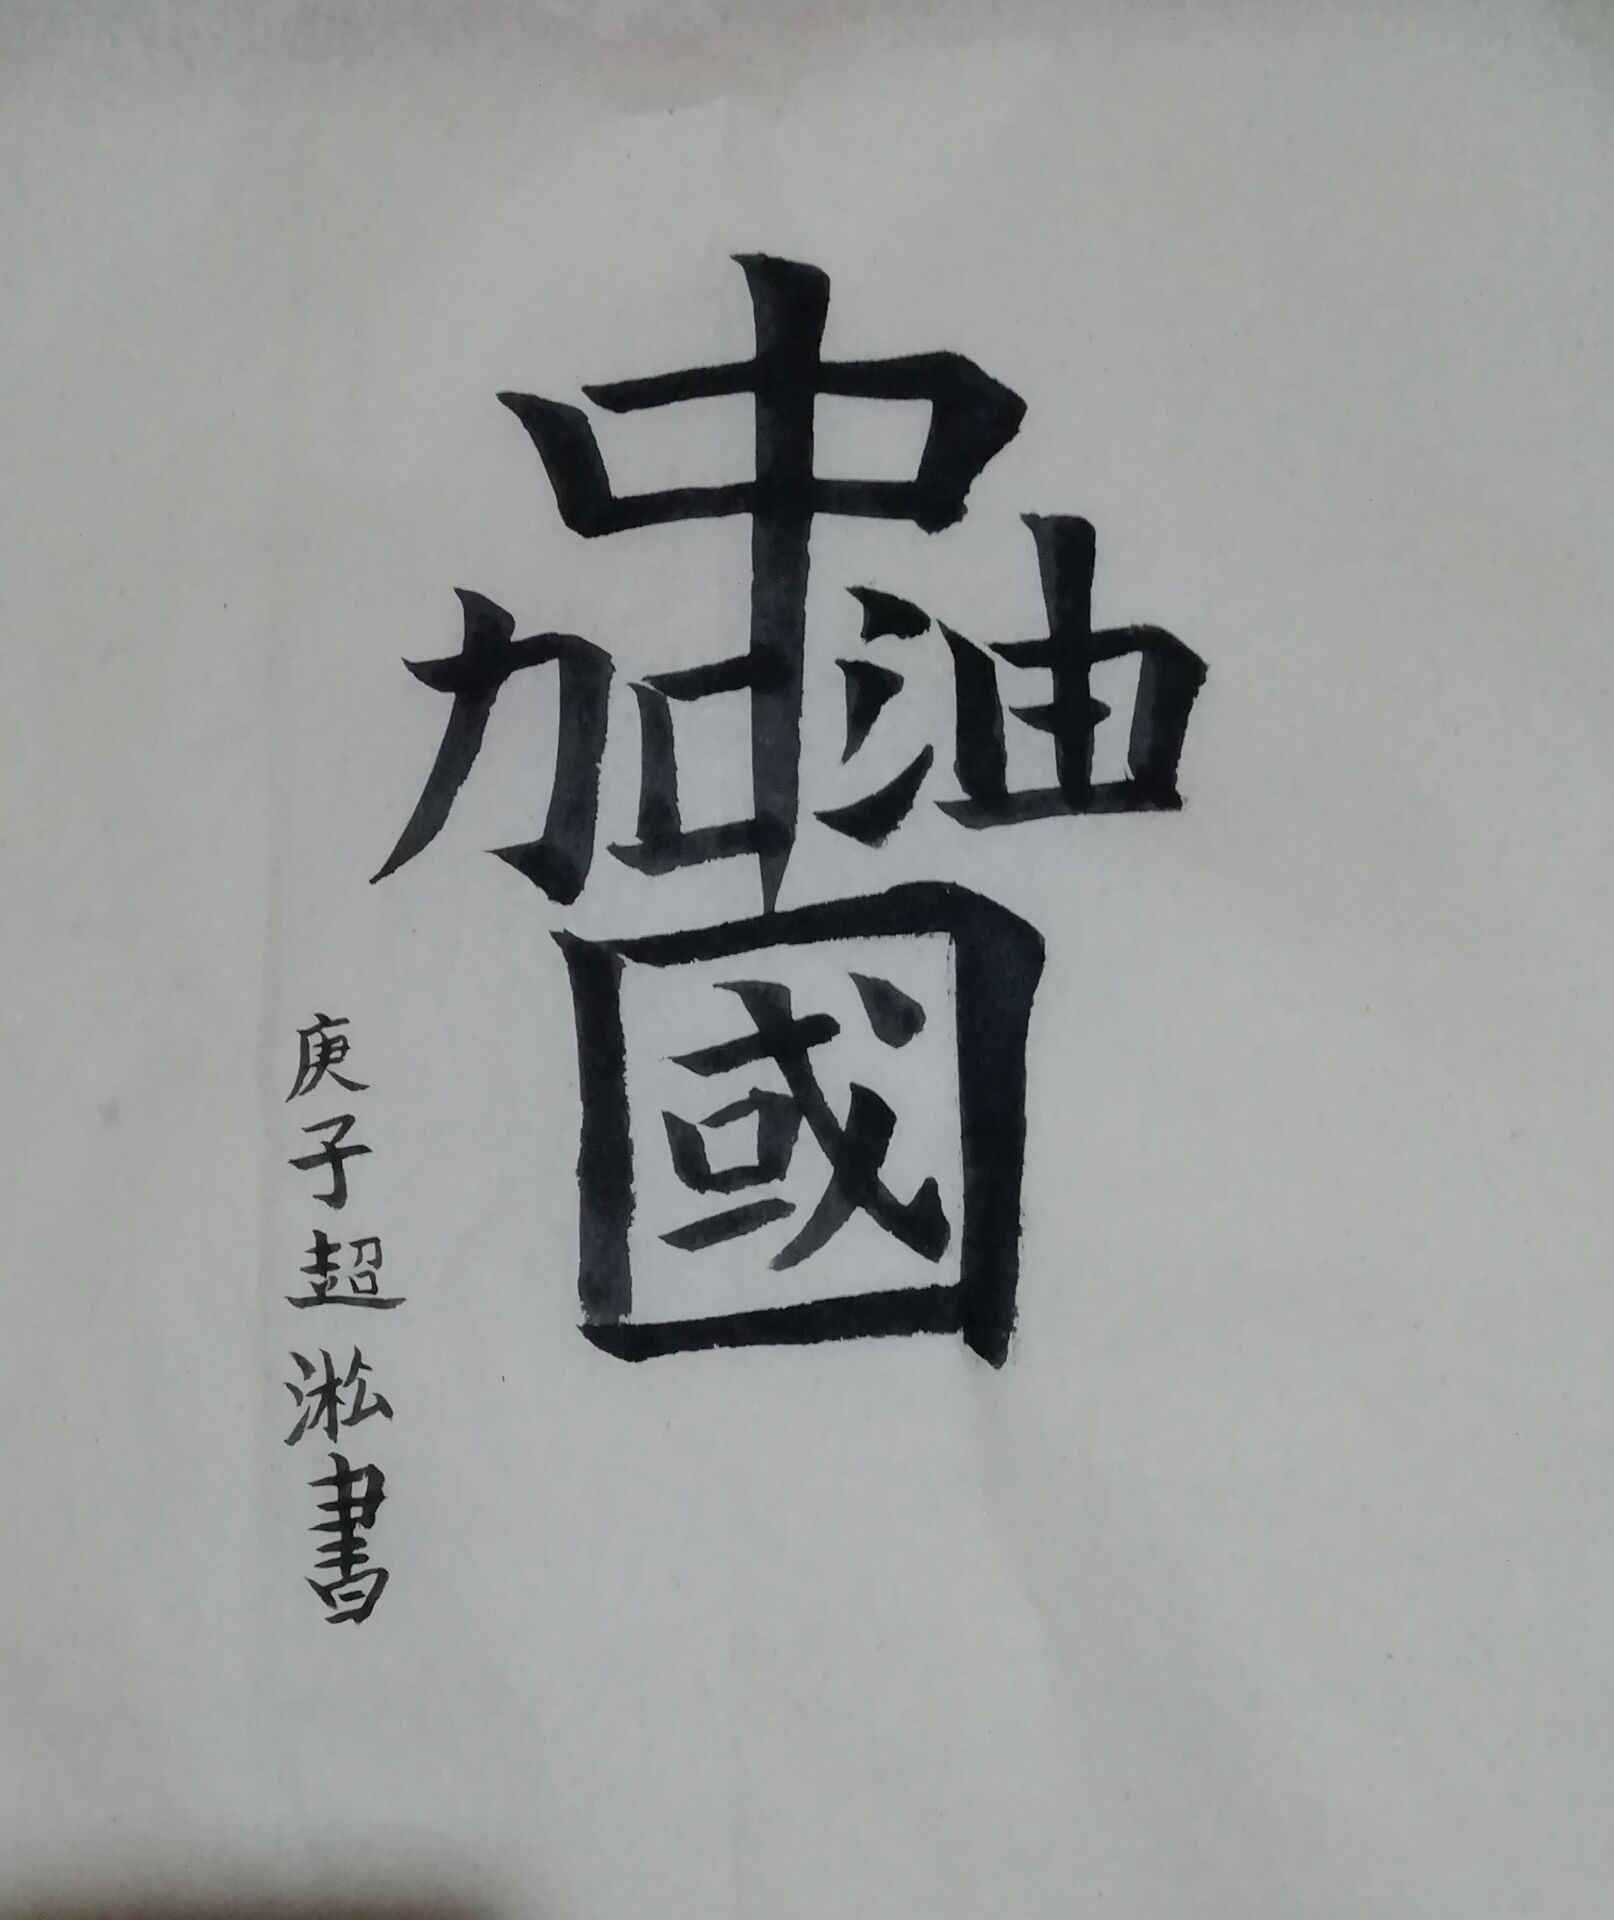 中國加油
庚子超淞書